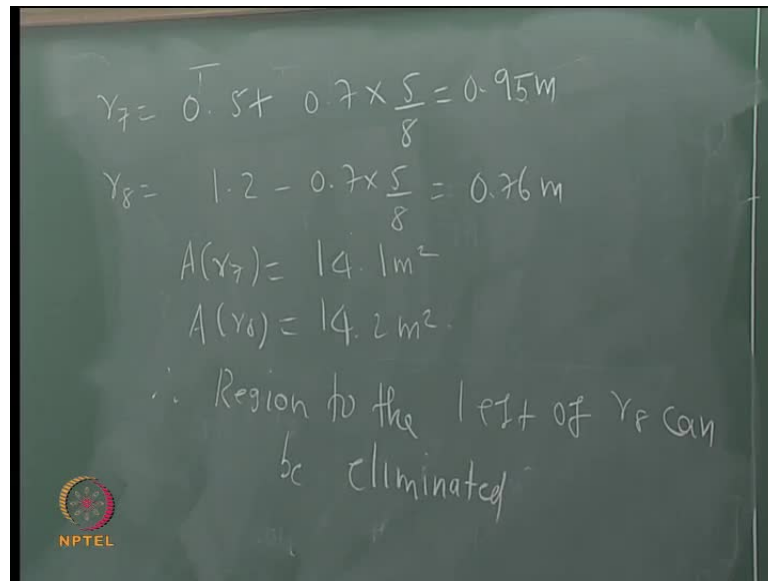 r7 = 0.5+ 0.7 × 5/8 = 0.95m
r8 = 1.2 - 0.7 × 5/8 = 0.76 m
A(r7) = 14.1m²
A(r8) = 14.2 m².
∴ Region to the left of r8 can
be eliminated
NPTEL